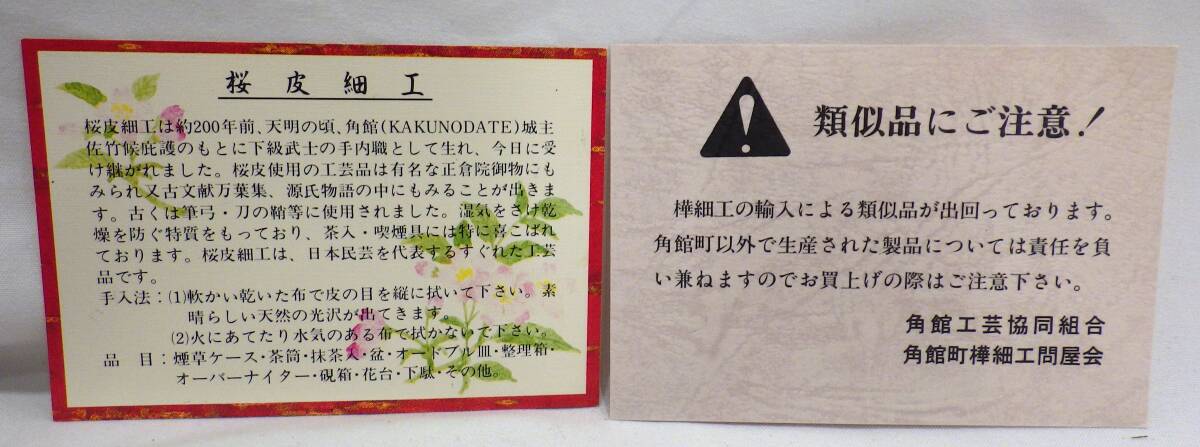 桜皮細工
桜皮細工は約200年前、天明の頃、角館(KAKUNODATE)城主
佐竹候庇護のもとに下級武士の手内職として生れ、今日に受
け継がれました。桜皮使用の工芸品は有名な正倉院御物にも
みられ又古文献万葉集、源氏物語の中にもみることが出きま
す。古くは筆弓・刀の鞘等に使用されました。湿気をさけ乾
燥を防ぐ特質をもっており、茶入・喫煙具には特に喜こばれ
ております。桜皮細工は、日本民芸を代表するすぐれた工芸
品です。
手入法：(1)軟かい乾いた布で皮の目を縦に拭いて下さい。素
晴らしい天然の光沢が出てきます。
(2)火にあてたり水気のある布で拭かないで下さい。
品　目：煙草ケース・茶筒・抹茶入・盆・オードブル皿・整理箱・
オーバーナイター・硯箱・花台・下駄・その他。
類似品にご注意！
樺細工の輸入による類似品が出回っております。
角館町以外で生産された製品については責任を負
い兼ねますのでお買上げの際はご注意下さい。
角館工芸協同組合
角館町樺細工問屋会